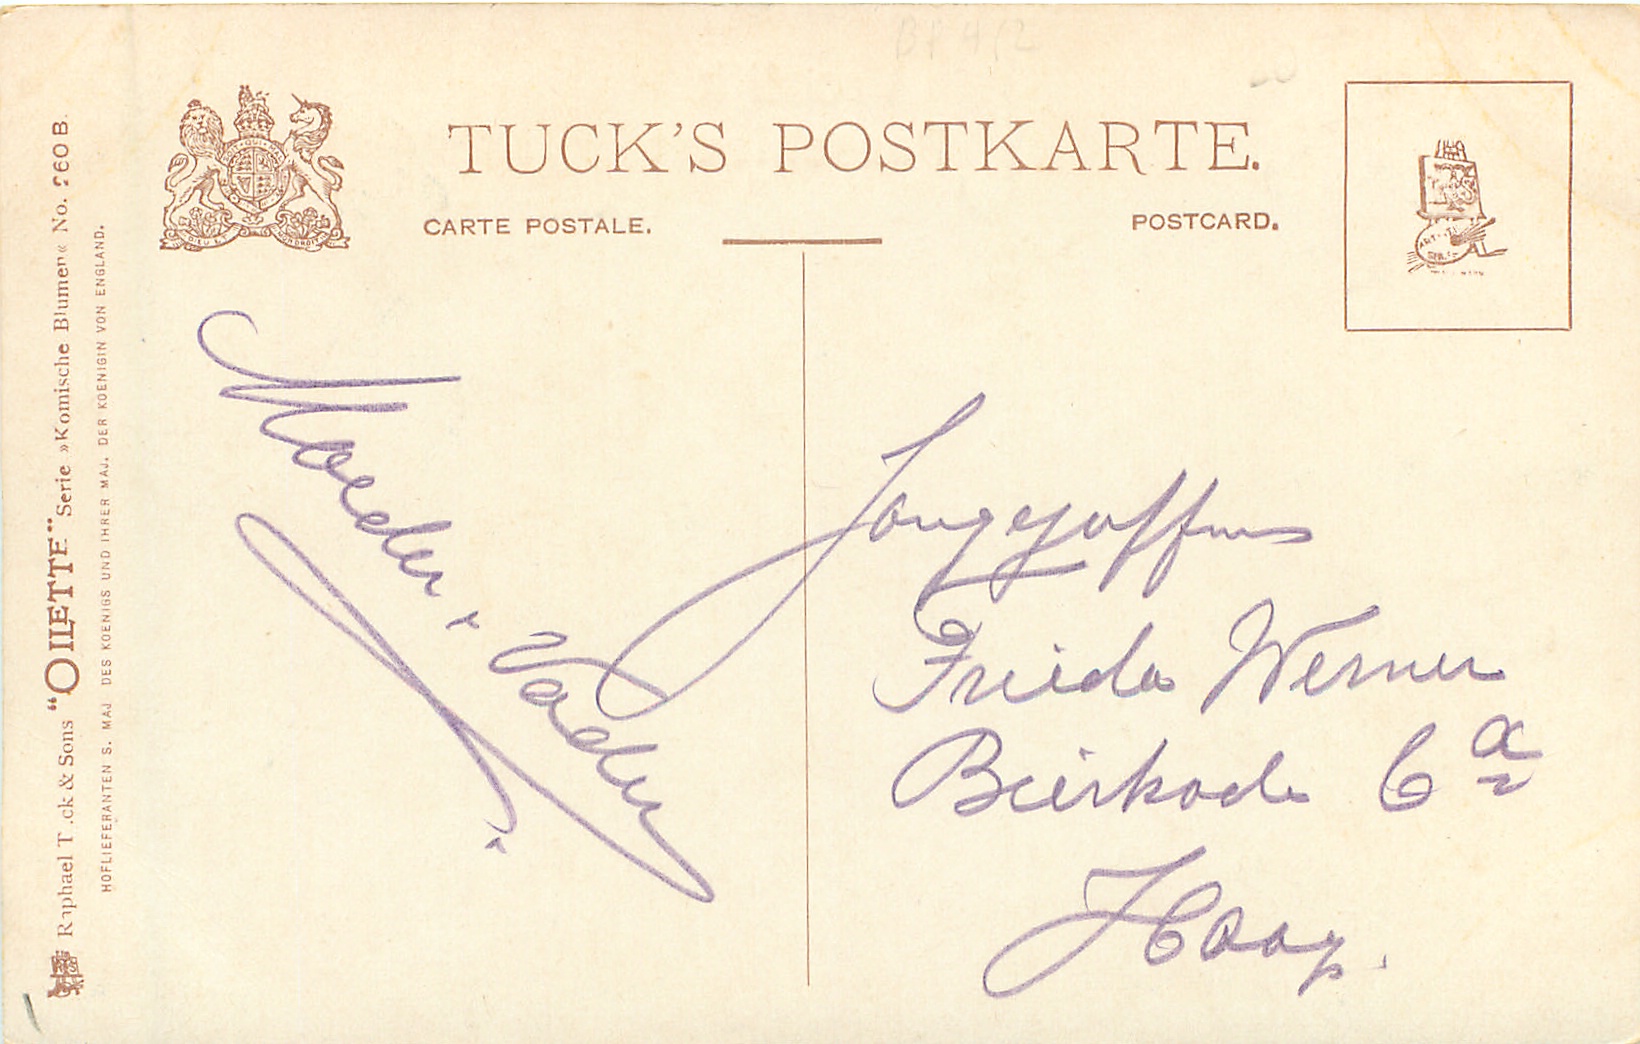 TUCK'S POSTKARTE.
CARTE POSTALE.
POSTCARD.
Raphael T.ck & Sons "OILETTE" Serie »Komische Blumen« No. 260 B.
HOFLIEFERANTEN S. MAJ DES KOENIGS UND IHRER MAJ. DER KOENIGIN VON ENGLAND.
Moeder. Vader.
Frieda Werner
Beirkade 6 a
Haag.